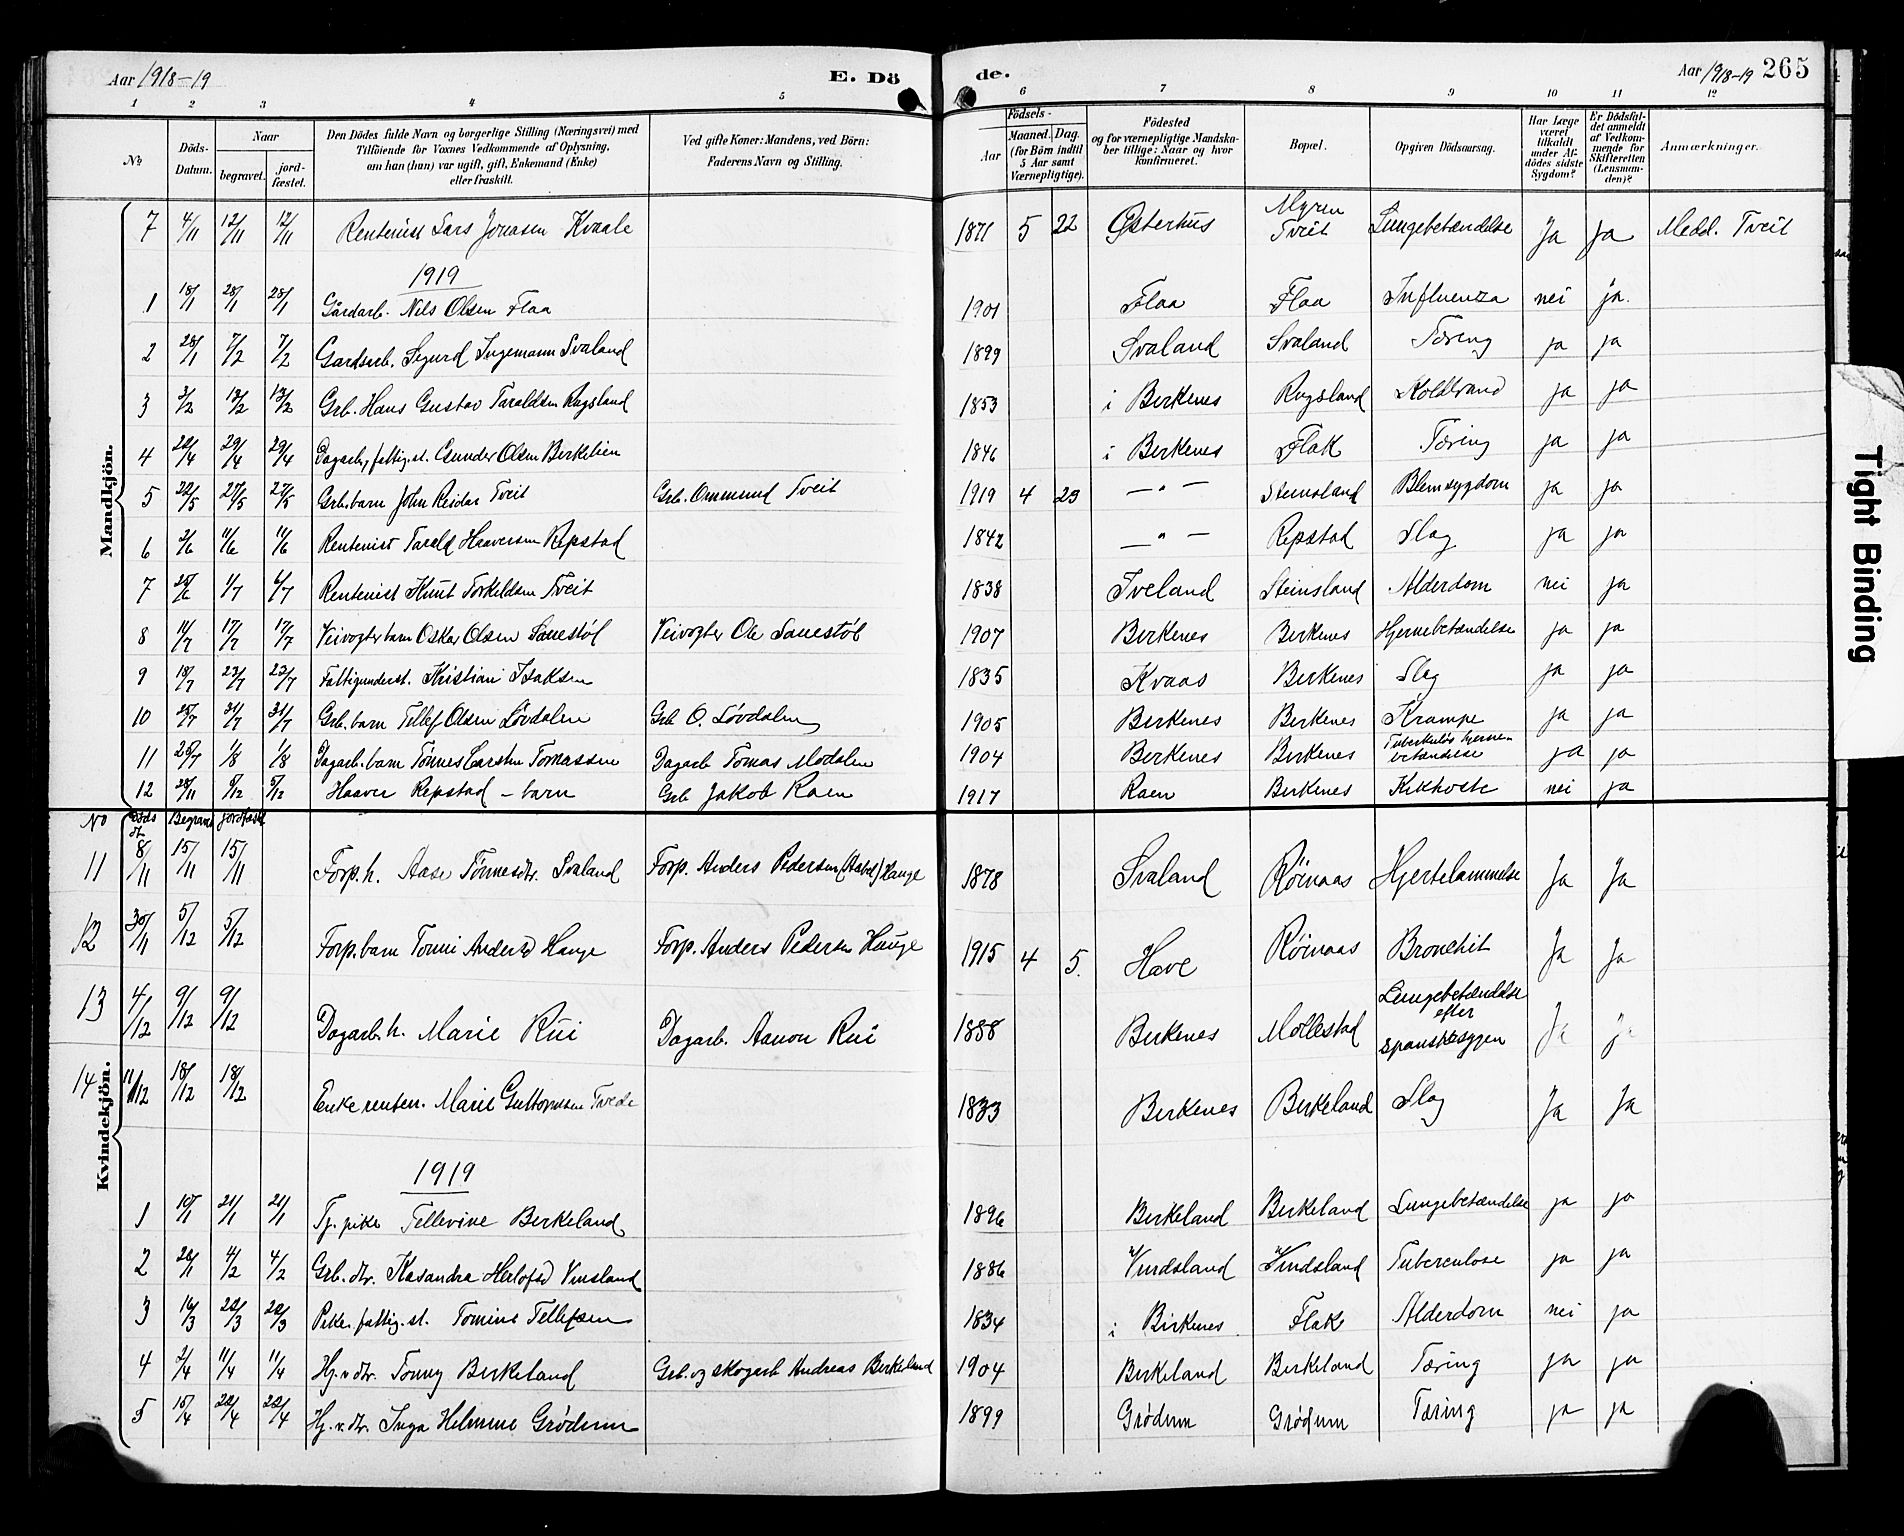 Aar 1918-19 E. Dö de. Aar 1918-19 265
1 2 3 4 5 6 7 8 9 10 11 12
No Döds-Datum. Naar begravet. jordfæstet. Den Dödes fulde Navn og borgerlige Stilling (Næringsvei) med Tilföiende for Voxnes Vedkommende af Oplysning, om han (hun) var ugift, gift, Enkemand (Enke) eller fraskilt. Ved gifte Koner: Mandens, ved Börn: Faderens Navn og Stilling. Födsels- Aar Maaned. Dag. (for Börn indtil 5 Aar samt Værnepligtige). Födested og for værnepligtige Mandskaber tillige: Naar og hvor konfirmeret. Bopæl. Opgiven Dödsaarsag. Har Læge været tilkaldt under Afdödes sidste Sygdom? Er Dödsfaldet anmeldt af Vedkommende for Skifteretten (Lensmanden)? Anmærkninger.
Mandkjön.
7 4/11 12/11 12/11 Rentenist Lars Jonasen Kvaale 1871 5 22 Østerhus Myren Tveit Lungebetændelse Ja Ja Medd. Tveit
1919
1 18/1 28/1 28/1 Gårdarb. Nils Olsen Flaa 1901 Flaa Flaa Influenza nei ja.
2 28/1 7/2 7/2 Gardsarb. Sigurd Ingemann Svaland 1899 Svaland Svaland Tæring ja ja
3 3/2 13/2 13/2 Grb. Hans Gustav Taraldsen Rugsland 1853 i Birkenes Rugsland Koldbrand ja ja
4 22/4 29/4 29/4 Dagarb, fattig.st. Gunder Olsen Berkelien 1846 i Birkenes Flak Tæring ja ja
5 22/5 27/5 27/5 Grb.barn John Reidar Tveit Grb. Ommund Tveit 1919 4 23 — " — Steinsland Blemsygdom ja ja
6 3/6 11/6 11/6 Rentenist Tarald Haaversen Repstad 1842 — " — Repstad Slag ja ja
7 25/6 1/7 1/7 Rentenist Knut Torkeldsen Tveit 1838 Iveland Steinsland Alderdom nei ja
8 11/7 17/7 17/7 Veivogter barn Oskar Olsen Sanestöl Veivogter Ole Sanestöl 1907 Birkenes Birkenes Hjernebetændelse ja ja
9 18/7 23/7 23/7 Fattigunderst. Kristian Isaksen 1835 Kvaas Birkenes Slag ja ja
10 25/7 31/7 31/7 Grb. barn Tellef Olsen Løvdalen Grb O. Løvdalen 1905 Birkenes Birkenes Krampe ja ja
11 25/7 1/8 1/8 Dagarb. barn Tønnes Carsten Tomassen Dagarb Tomas Modalen 1904 Birkenes Birkenes Tuberkuløs hjernebetændelse ja ja
12 28/11 5/12 5/12 Haaver Repstad - barn Grb Jakob Raen 1917 Raen Birkenes Kikhoste nei ja
No Døds dt Begravet jordfæstet
Kvindekjön.
11 8/11 15/11 15/11 Forp. h. Aase Tønnesdtr. Svaland Forp. Anders Pedersen (Stabel) Hauge 1878 Svaland Røinaas Hjertelammelse Ja Ja
12 30/11 5/12 5/12 Forp. barn Tomi Andersd Hauge Forp. Anders Pedersen Hauge 1915 4 5. Have Røinaas Bronchit Ja Ja
13 4/12 9/12 9/12 Dagarb. h. Marie Rui Dagarb. Aanon Rui 1888 Birkenes Mollestad Lungebetændelse efter spanskesygen Ja Ja
14 11/12 18/12 18/12 Enke renten. Marie Guttormsen Tvede 1833 Birkenes Birkeland Slag Ja Ja
1919
1 10/1 21/1 21/1 Tj. pike Tellevine Birkeland 1896 Birkeland Birkeland Lungebetændelse ja ja
2 28/1 4/2 4/2 Grb. dtr. Kasandra Herlofsd Vinsland 1886 Vindsland Vindsland Tuberculose ja ja
3 16/3 22/3 22/3 Pike. fattig. st. Tomine Tellefsen 1834 i Birkenes. Flak Alderdom nei ja
4 3/4 11/4 11/4 Hj. v. dtr. Tonny Birkeland Grb. og skogarb Andreas Birkeland 1904 Birkeland Birkeland Tæring ja ja
5 15/4 22/4 22/4 Hj. v. dtr. Inga Helmine Grødum 1899 Grødum Grødum Tæring ja ja
Tight Binding